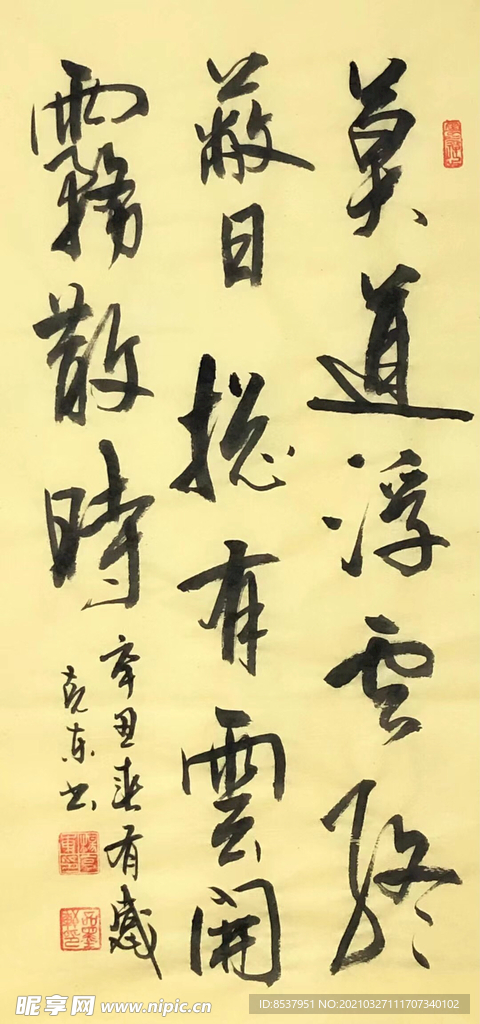 莫道浮云終
蔽日揔有雲開
霧散時
辛丑春有感
克东书
昵享网 www.nipic.cn
ID:8537951 NO:20210327111707340102